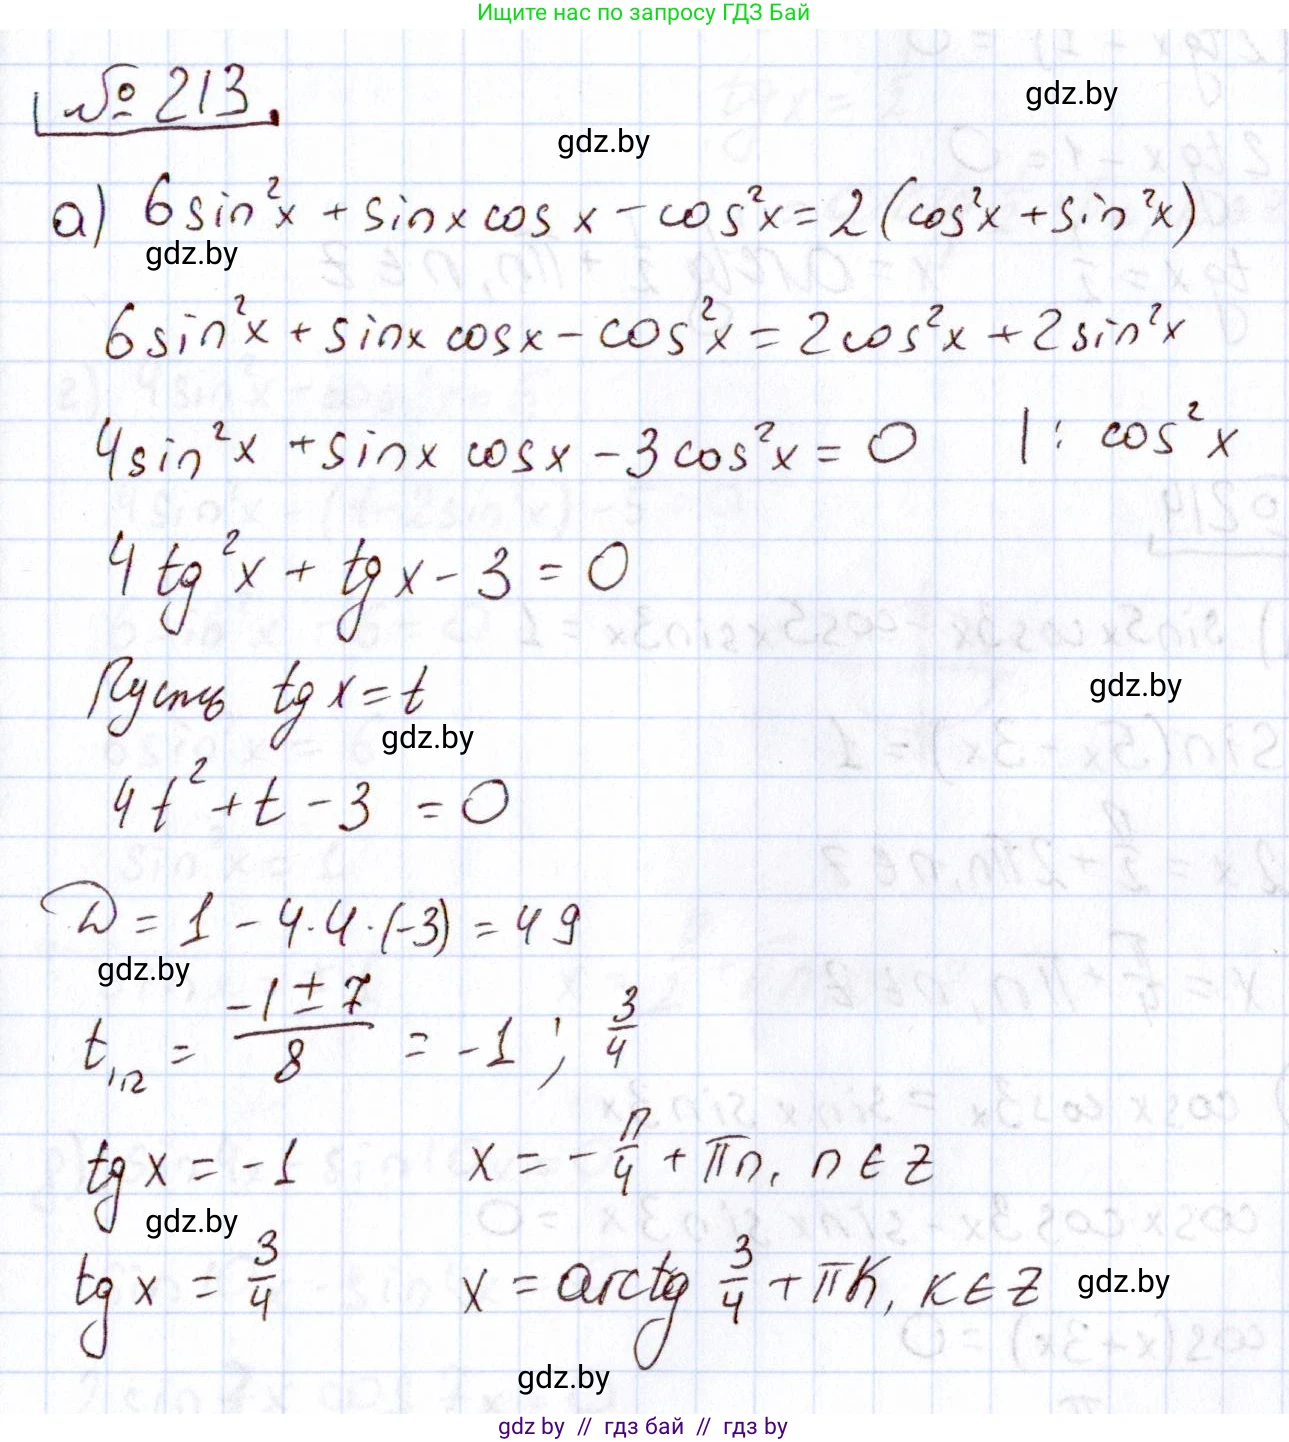 Ищите нас по запросу ГДЗ Бай
№ 213
gdz.by
gdz.by
а) 6sin²x + sinx cosx - cos²x = 2(cos²x + sin²x)
gdz.by
6sin²x + sinx cosx - cos²x = 2cos²x + 2sin²x
4sin²x + sinx cosx - 3cos²x = 0 | : cos²x
4tg²x + tgx - 3 = 0
Пусть tgx = t
gdz.by
gdz.by
4t² + t - 3 = 0
D = 1 - 4·4·(-3) = 49
gdz.by
t₁,₂ = (-1 ± 7)/8 = -1 ; 3/4
tgx = -1 x = -π/4 + πn, n ∈ Z
gdz.by
tgx = 3/4 x = arctg 3/4 + πk, k ∈ Z
gdz.by
gdz.by
gdz by // гдз бай // гдз by